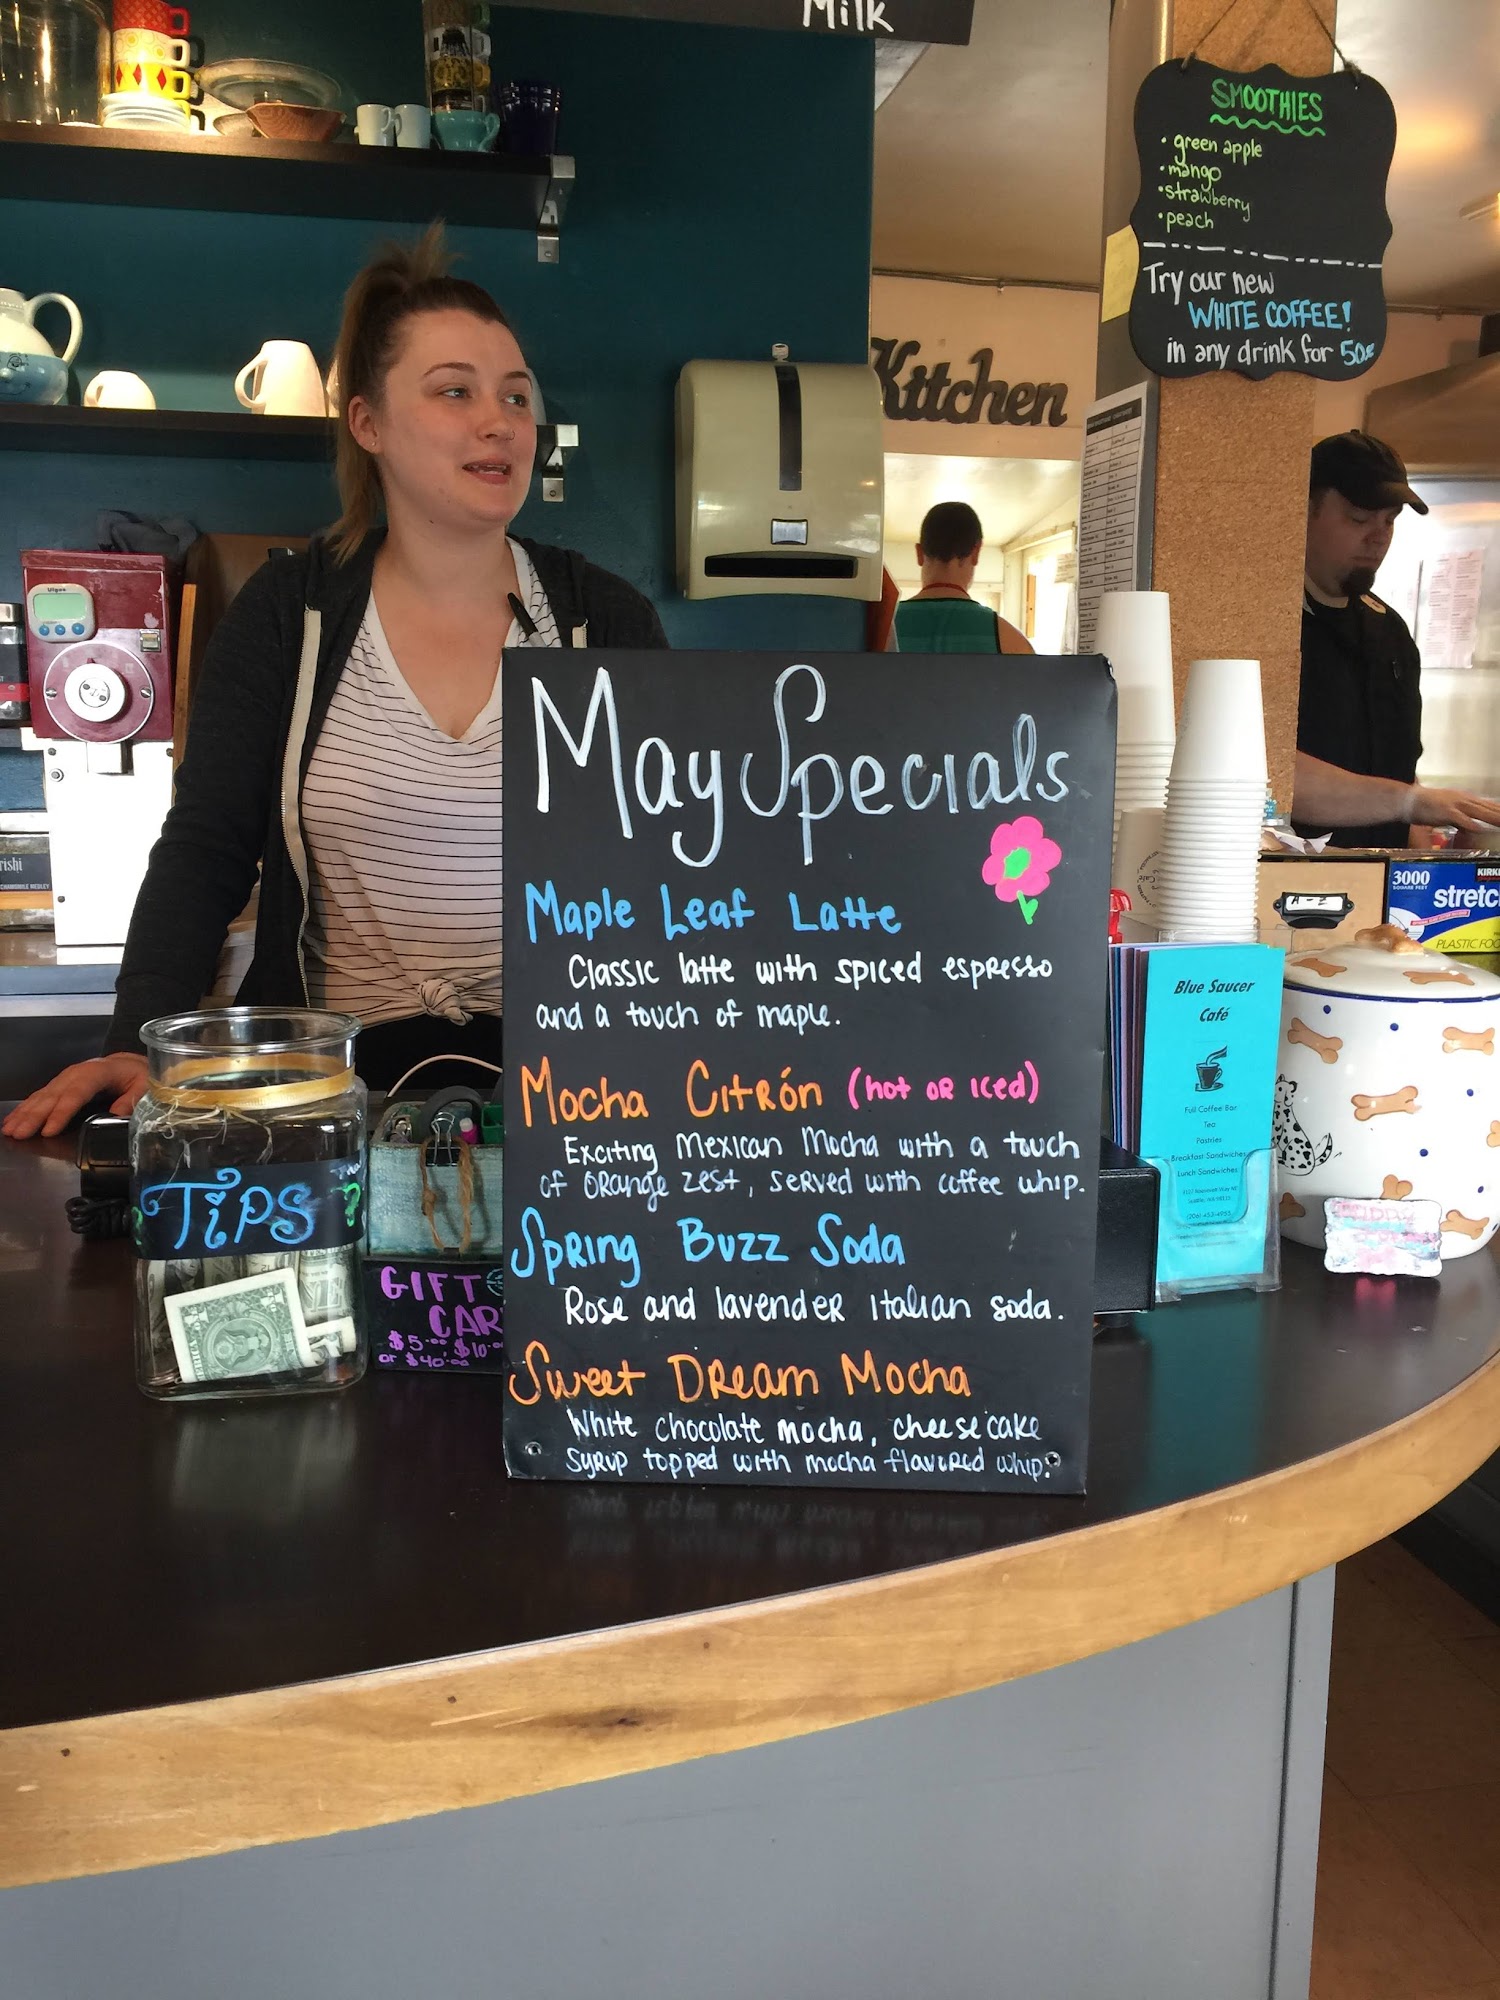 Milk
SMOOTHIES
• green apple
• mango
• strawberry
• peach
Try our new
WHITE COFFEE!
in any drink for 50¢
Kitchen
May Specials
Maple Leaf Latte
Classic latte with spiced espresso
and a touch of maple.
Mocha Citrón (hot or iced)
Exciting Mexican Mocha with a touch
of orange zest, served with coffee whip.
Spring Buzz Soda
Rose and lavender Italian soda.
Sweet Dream Mocha
White chocolate mocha, cheesecake
syrup topped with mocha flavored whip.
TiPS
GIFT
CAR
$5.00, $10.00
or $40.00
Blue Saucer
Café
Full Coffee Bar
Tea
Pastries
Breakfast Sandwiches
Lunch Sandwiches
3000
SQUARE FEET
KIRK
stretc
PLASTIC FOO
A-Z
rishi
CHAMOMILE MEDLEY